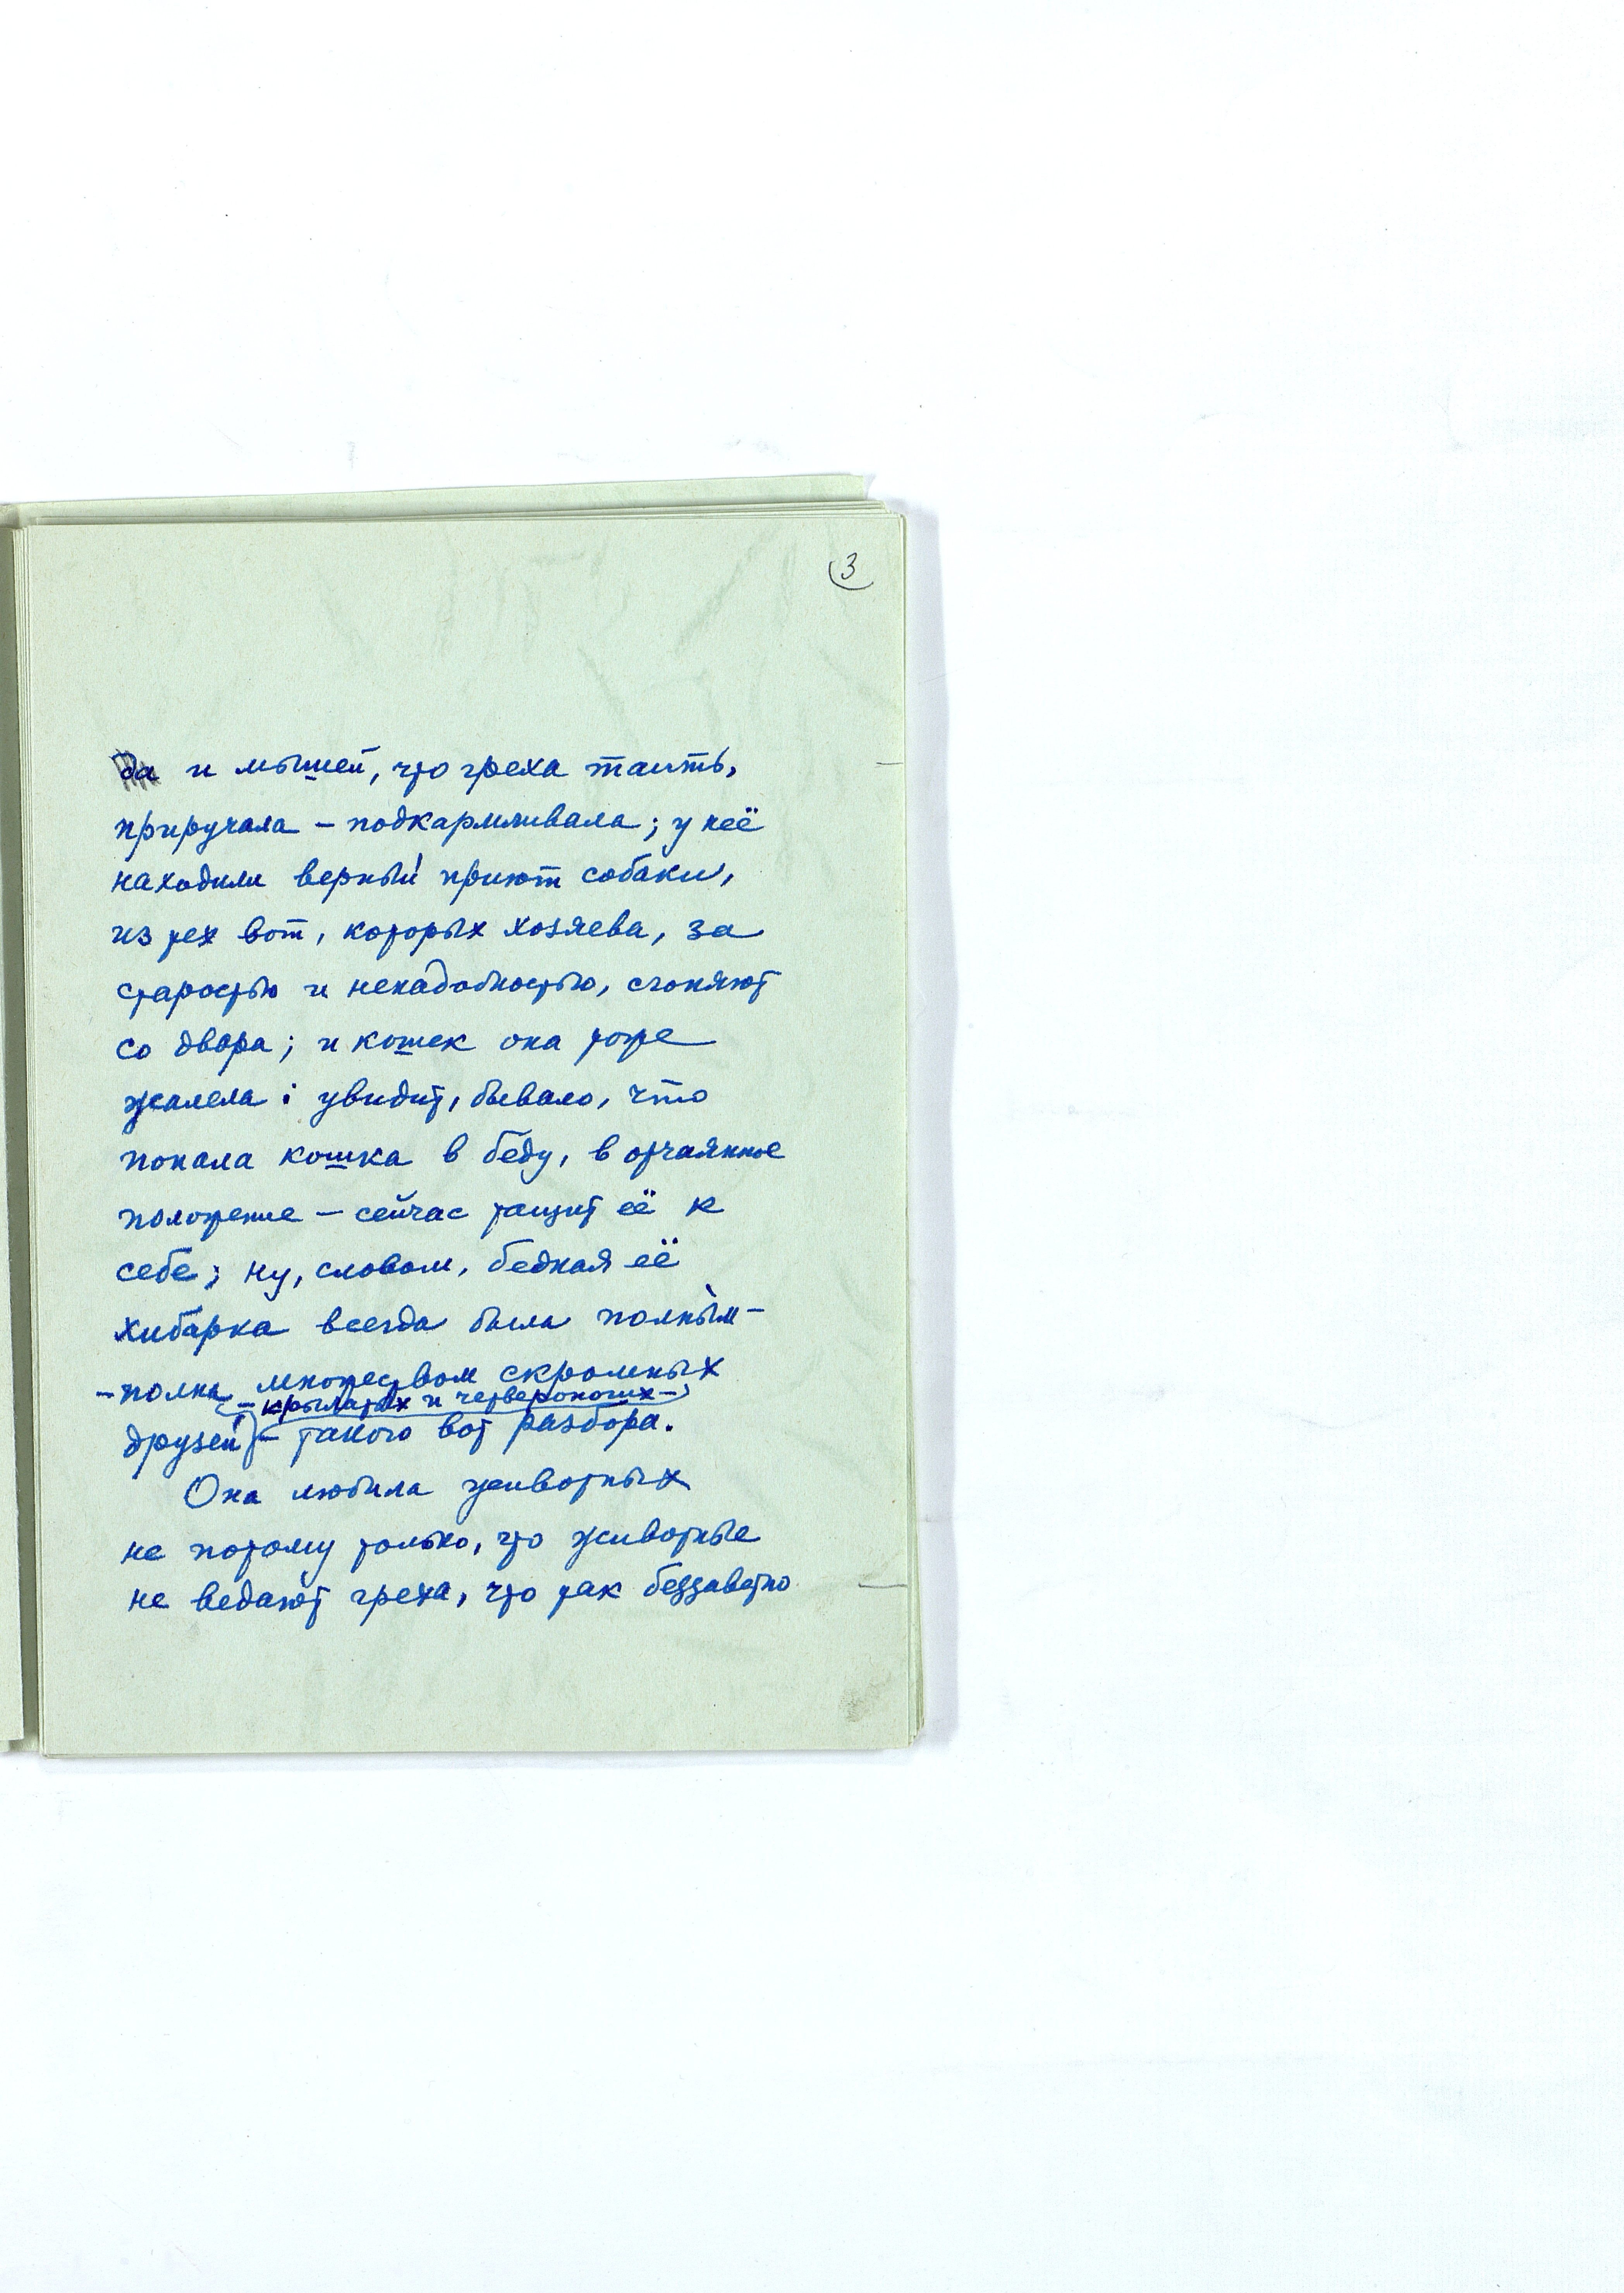 3
да и мышей, что греха таить,
приручала – подкармливала; у неё
находили верный приют собаки,
из тех вот, которых хозяева, за
старостью и ненадобностью, сгоняют
со двора; и кошек она тоже
жалела: увидит, бывало, что
попала кошка в беду, в отчаянное
положение – сейчас тащит её к
себе; ну, словом, бедная её
хибарка всегда была полным-
-полна множеством скромных
– крылатых и четвероногих –
друзей – такого вот разбора.
Она любила животных
не потому только, что животные
не ведают греха, что так беззаветно